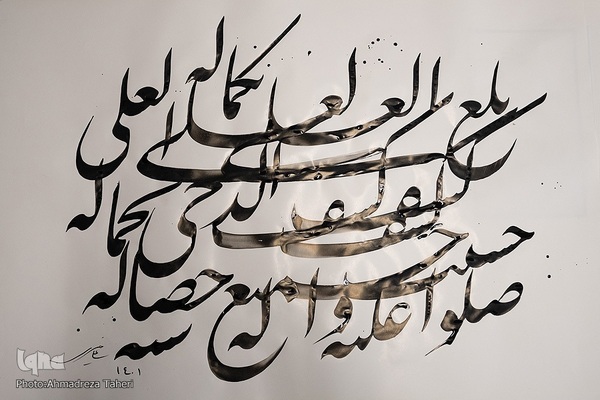 بلغ العلی بکماله
کشف الدجی بجماله
حسنت جمیع خصاله
صلوا علیه وآله
۱۴۰۱
iqna
Photo:Ahmadreza Taheri